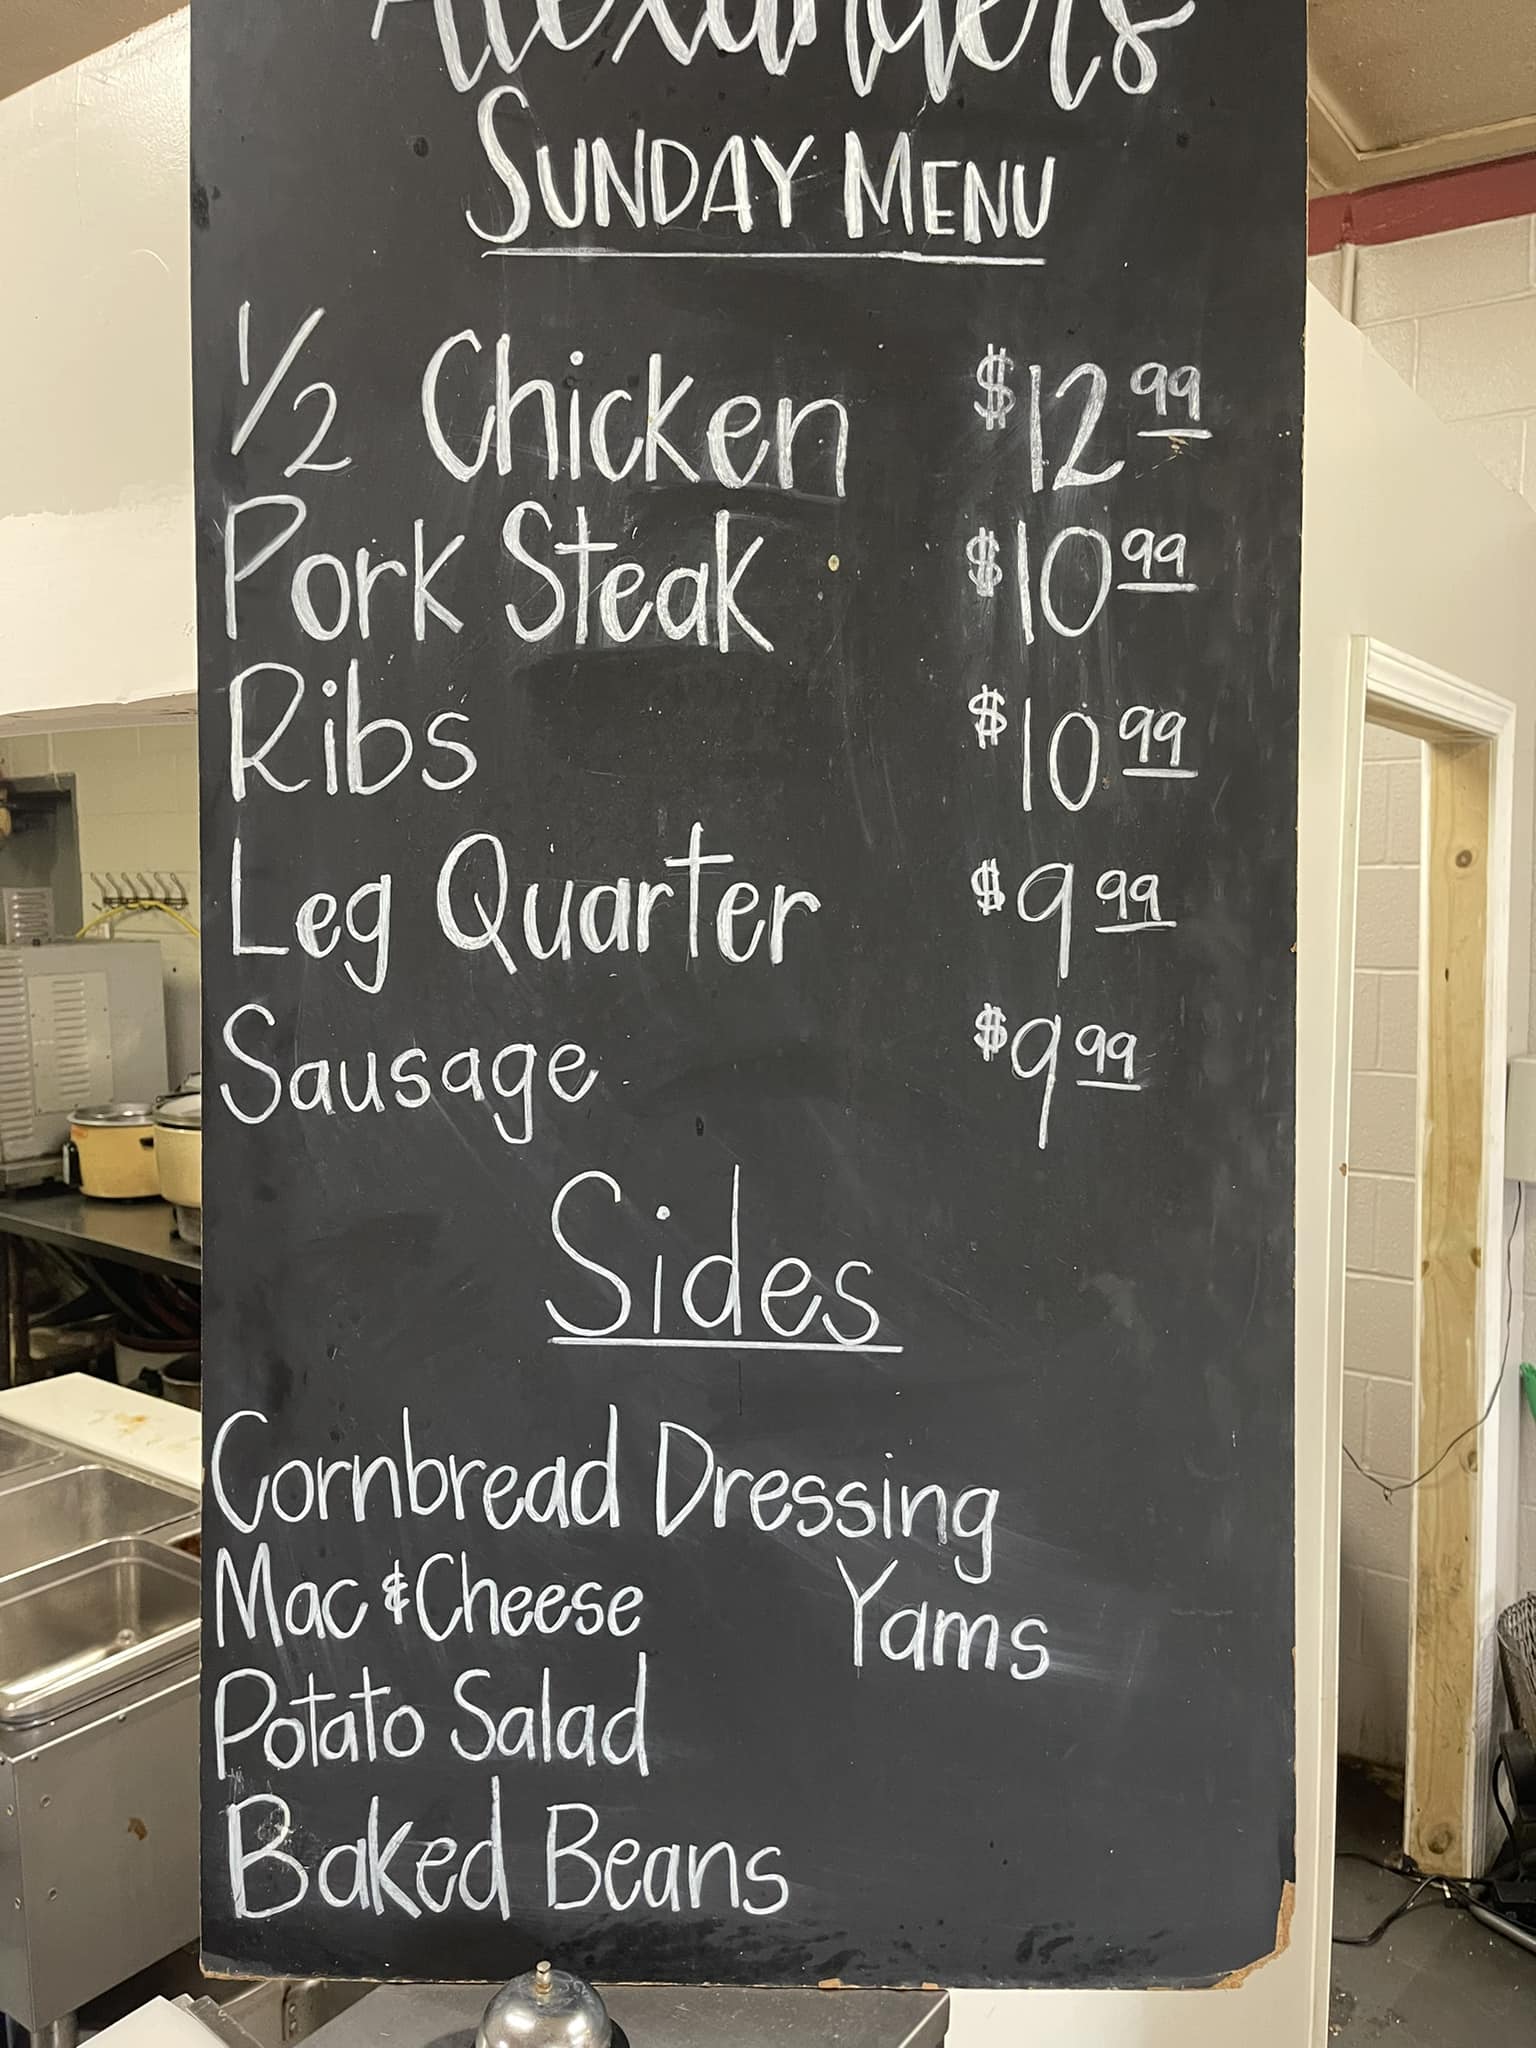 Alexanders
SUNDAY MENU
1/2 Chicken $12.99
Pork Steak $10.99
Ribs $10.99
Leg Quarter $9.99
Sausage $9.99
Sides
Cornbread Dressing
Mac & Cheese Yams
Potato Salad
Baked Beans